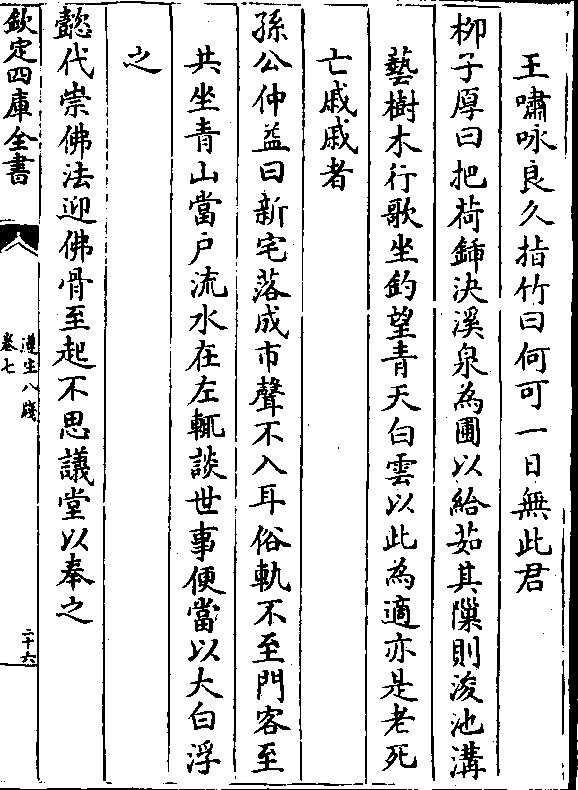 王嘯咏良久指竹曰何可一日無此君
柳子厚曰把荷鍤決溪泉為圃以給茹其隟則浚池溝
藝樹木行歌坐釣望青天白雲以此為適亦是老死
亡戚戚者
孫公仲益曰新宅落成市聲不入耳俗軌不至門客至
共坐青山當户流水在左輒談世事便當以大白浮
之
懿代崇佛法迎佛骨至起不思議堂以奉之
欽定四庫全書
遵生八牋
卷七
二十六